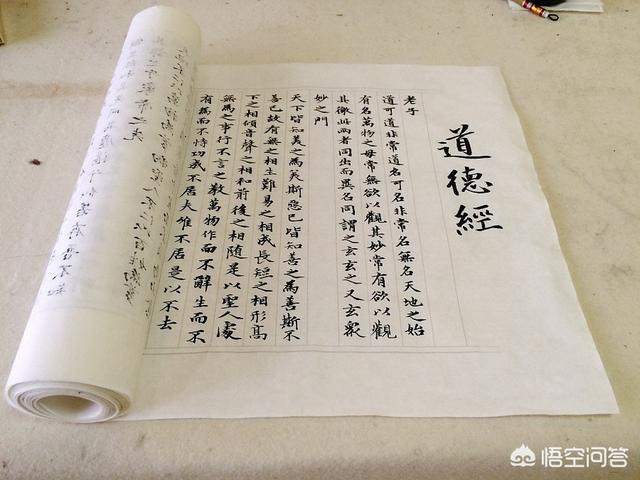 道德經
老子
道可道非常道名可名非常名無名天地之始
有名萬物之母常無欲以觀其妙常有欲以觀
其徼此兩者同出而異名同謂之玄玄之又玄衆
妙之門
天下皆知美之為美斯惡已皆知善之為善斯不
善已故有無之相生難易之相成長短之相形高
下之相傾音聲之相和前後之相随是以聖人處
無為之事行不言之教萬物作而不辭生而不
有為而不恃功成不居夫唯不居是以不去
悟空问答